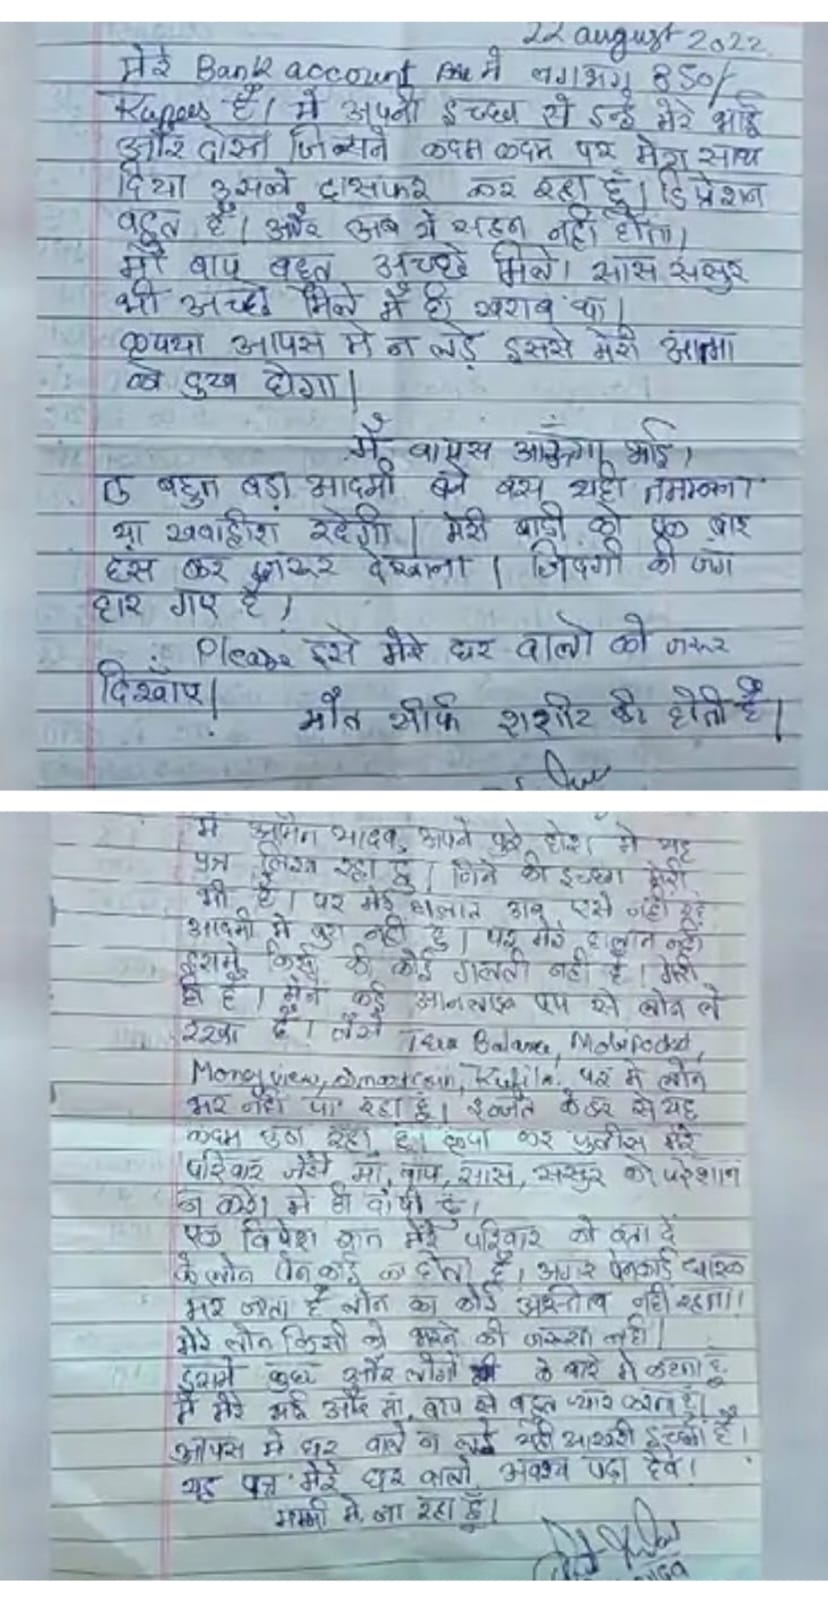 22 august 2022.
मेरे Bank account में लगभग 850/-
Rupees है। मैं अपनी इच्छा से इन्हे मेरे भाई
और दोस्त जिसने कदम कदम पर मेरा साथ
दिया उसको ट्रांसफर कर रहा हूं। डिप्रेशन
बहुत है। और अब ये सहन नहीं होता।
माँ बाप बहुत अच्छे मिले। सास ससुर
भी अच्छे मिले मैं ही खराब था।
कृपया आपस में न लड़े इससे मेरी आत्मा
को दुख होगा।
मैं वापस आऊंगा भाई।
तु बहुत बड़ा आदमी बने बस यही तमन्ना
या ख्वाहीश रहेगी। मेरी बाडी को एक बार
हंस कर जरूर देखना। जिंदगी की जंग
हार गए है।
Please इसे मेरे घर वालो को जरूर
दिखाए।
मौत सीर्फ शरीर की होती है।
मैं यादव, अपने पुरे होश में यह
पत्र लिख रहा हु। जिने की इच्छा मेरी
भी है। पर मेरे हालात अब एसे नही रहे
आदमी मे बुरा नही हु। पर मेरे हालात नही।
इसमे किसी की कोई गलती नही है। मेरी
ही है। मेने कई आनलाइन एप से लोन ले
रखा है। जैसे True Balance, Mobipocket,
Moneyview, Smartcoin, Rufilo, पर मे लोन
भर नही पा रहा हूं। इज्जत के डर से यह
कदम उठा रहा हूं। कृपा कर पुलीस मेरे
परिवार जैसे माँ, बाप, सास, ससुर को परेशान
न करे। मे ही दोषी हूं।
एक विषेश बात मेरे परिवार को बता दें
के लोन पेनकार्ड का होता है। अगर पेनकार्ड धारक
मर जाता है लोन का कोई अस्तीत्व नही रहता।
मेरे लोन किसी को भरने की जरूरत नही।
इसमे कुछ और लोगों के बारे मे कहता हूं
मैं मेरे भाई और मां, बाप से बहुत प्यार करता हूं।
आपस मे घर वाले न लड़े यही आखरी इच्छा है।
यह पत्र मेरे घर वालो अवश्य पढ़ा देवे।
मम्मी मे जा रहा हूँ।